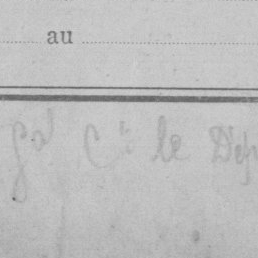 au
Gal Ct le Dép